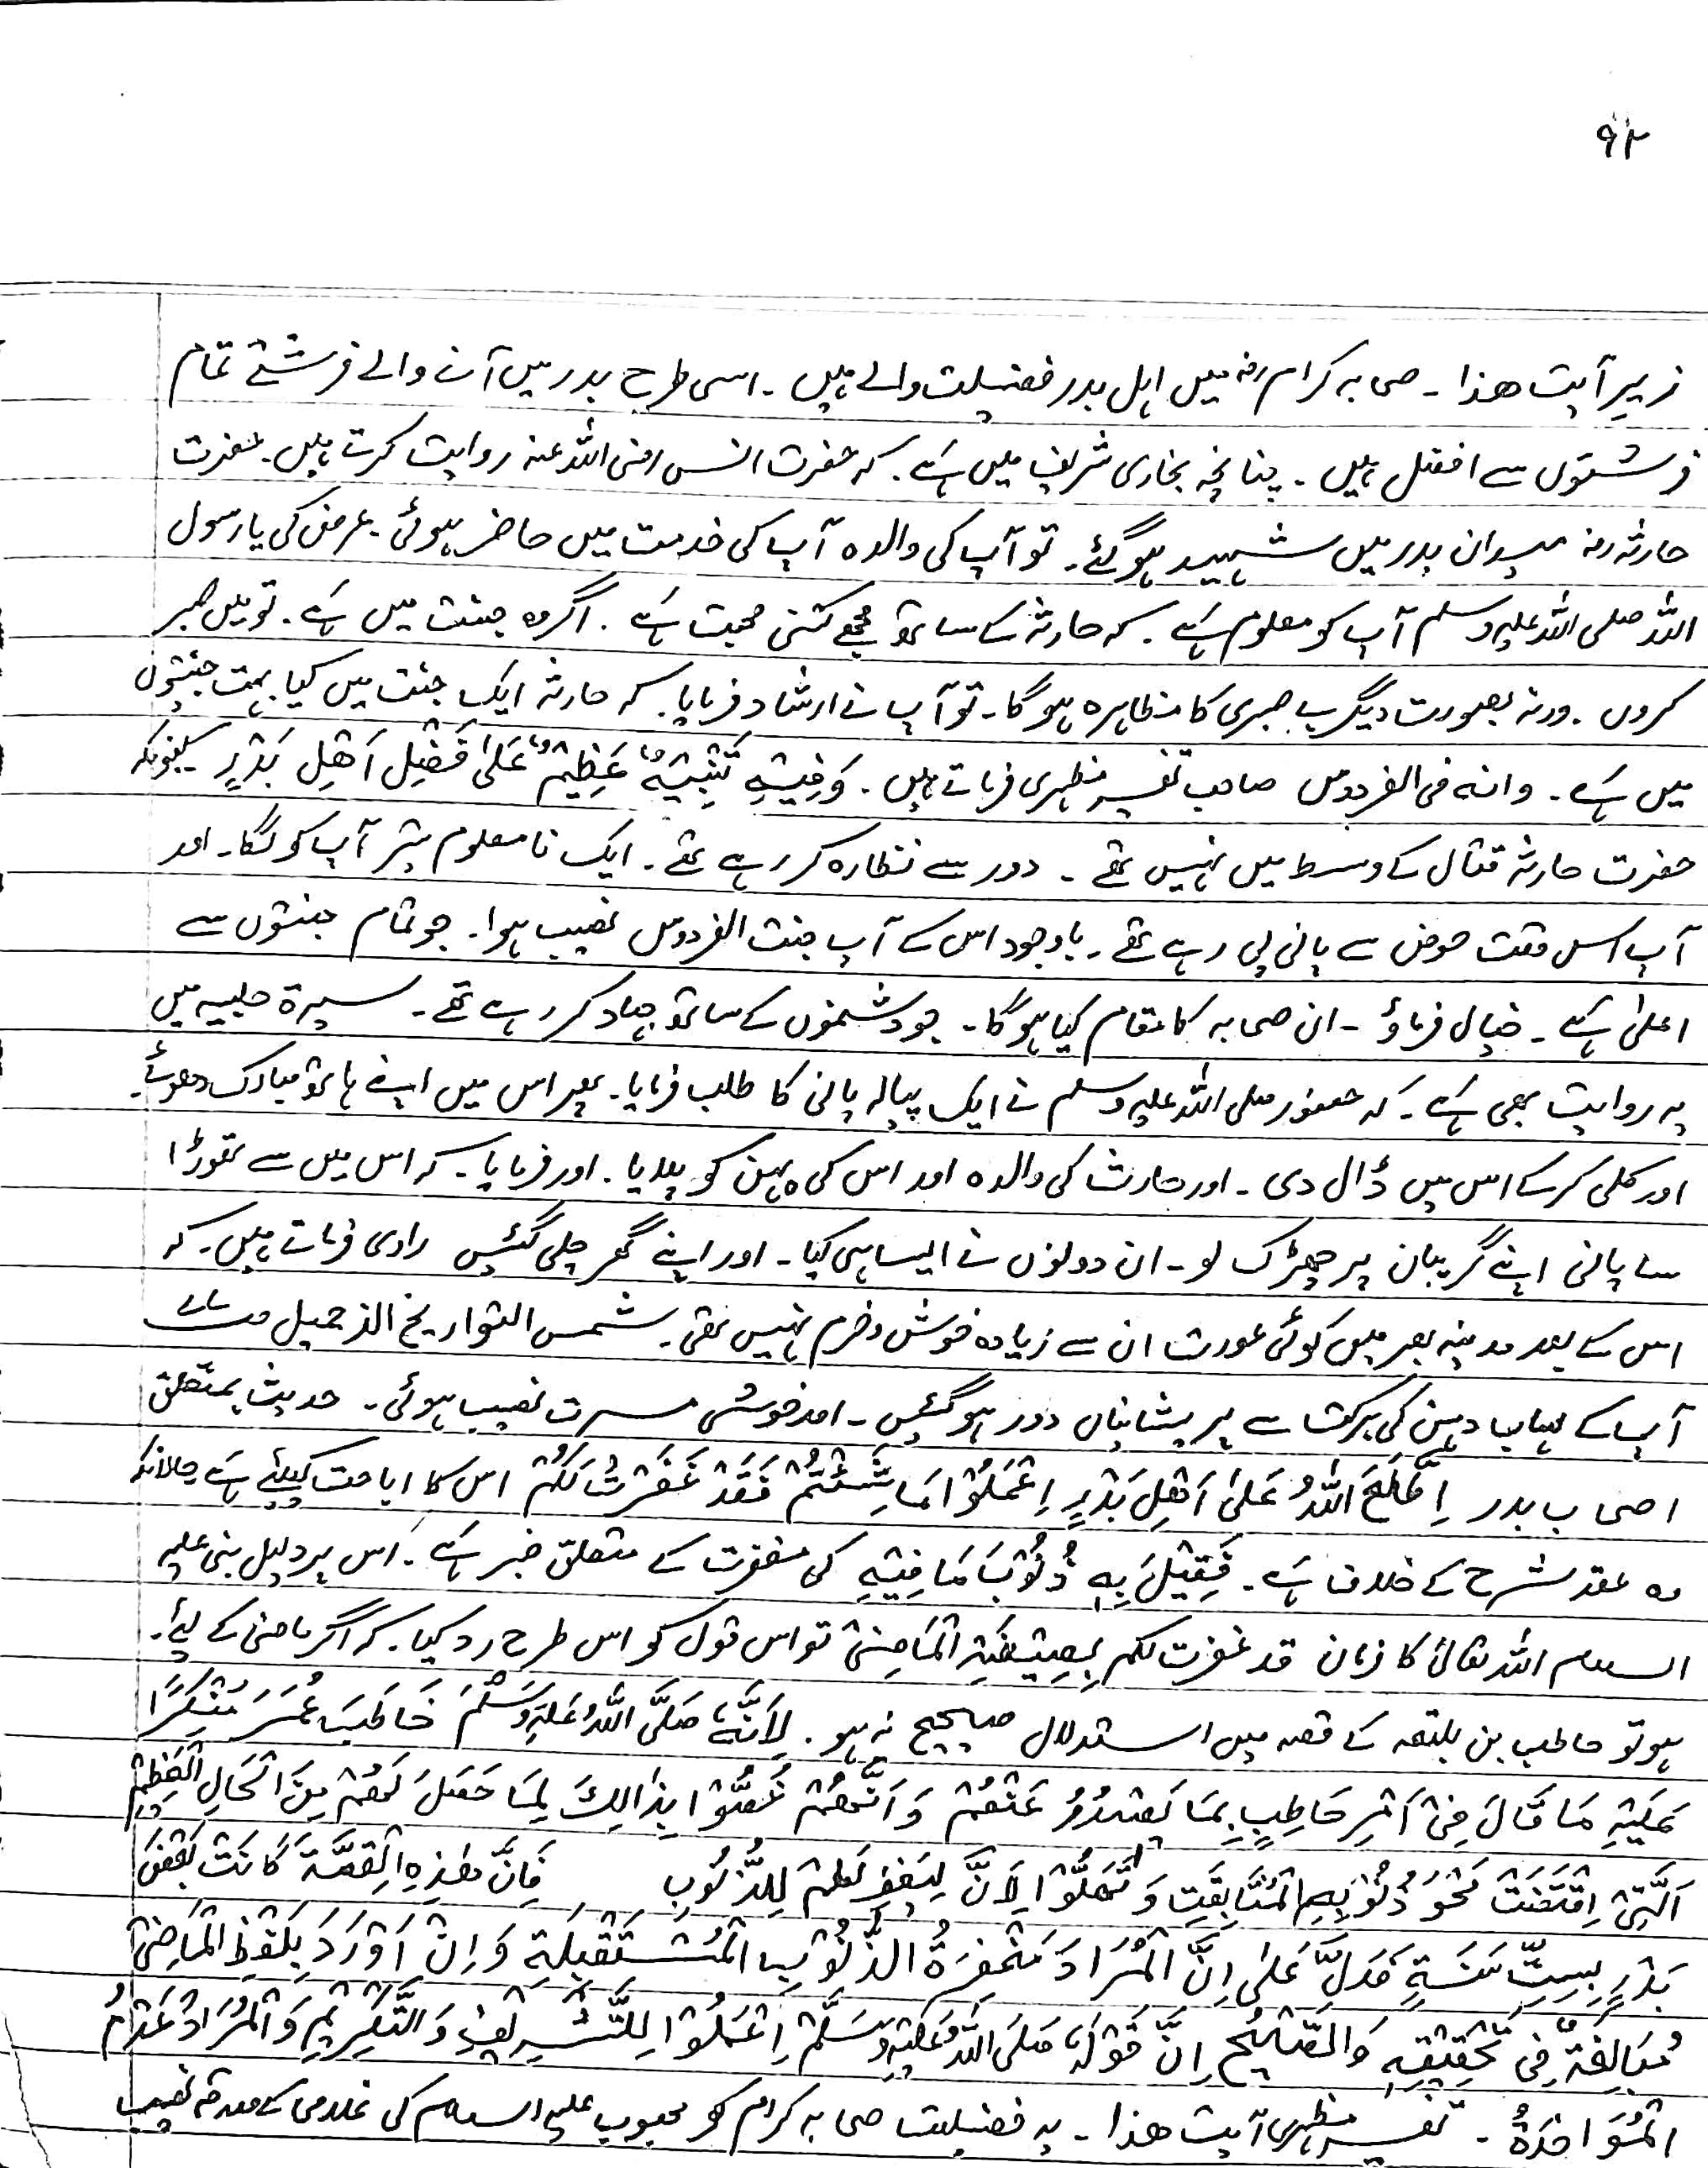 ۹۲
زیرِ آیت ھذا ۔ صحابہ کرام رضہ میں اہل بدر فضیلت والے ہیں ۔ اسی طرح بدر میں آنے والے فرشتے تمام
فرشتوں سے افضل ہیں ۔ چنانچہ بخاری شریف میں ہے ۔ کہ حضرت انس رضی اللہ عنہ روایت کرتے ہیں ۔ حضرت
حارثہ رضہ میدان بدر میں شہید ہو گئے ۔ تو آپ کی والدہ آپ کی خدمت میں حاضر ہوئی ۔ عرض کی یا رسول
اللہ صلی اللہ علیہ وسلم آپ کو معلوم ہے ۔ کہ حارثہ کے ساتھ مجھے کتنی محبت ہے ۔ اگر وہ جنت میں ہے ۔ تو میں صبر
کروں ۔ ورنہ بصورت دیگر بے صبری کا مظاہرہ ہوگا ۔ تو آپ نے ارشاد فرمایا ۔ کہ حارثہ ایک جنت میں کیا بہت جنتوں
میں ہے ۔ وانہ فی الفردوس صاحب تفسیر مظہری فرماتے ہیں ۔ وَفِیْہِ تَنْبِیْہٌ عَظِیْمٌ عَلٰی فَضْلِ اَھْلِ بَدْرٍ کیونکہ
حضرت حارثہ قتال کے وسط میں نہیں تھے ۔ دور سے نظارہ کر رہے تھے ۔ ایک نامعلوم تیر آپ کو لگا ۔ اور
آپ اس وقت حوض سے پانی پی رہے تھے ۔ باوجود اس کے آپ جنت الفردوس نصیب ہوا ۔ جو تمام جنتوں سے
اعلیٰ ہے ۔ خیال فرماؤ ۔ ان صحابہ کا مقام کیا ہوگا ۔ جو دشمنوں کے ساتھ جہاد کر رہے تھے ۔ سیرۃ حلبیہ میں
یہ روایت بھی ہے ۔ کہ حضور صلی اللہ علیہ وسلم نے ایک پیالہ پانی کا طلب فرمایا ۔ پھر اس میں اپنے ہاتھ مبارک دھوئے ۔
اور کلی کر کے اس میں ڈال دی ۔ اور حارث کی والدہ اور اس کی بہن کو پلایا ۔ اور فرمایا ۔ کہ اس میں سے تھوڑا
سا پانی اپنے گریبان پر چھڑک لو ۔ ان دونوں نے ایسا ہی کیا ۔ اور اپنے گھر چلی گئیں راوی فرماتے ہیں ۔ کہ
اس کے بعد مدینہ بھر میں کوئی عورت ان سے زیادہ خوش و خرم نہیں تھی ۔ شمس التواریخ
آپ کے لعاب دہن کی برکت سے پریشانیاں دور ہو گئیں ۔ اور خوشی مسرت نصیب ہوئی ۔ حدیث بمتعلق
اصحاب بدر اِطَّلَعَ اللّٰہُ عَلٰی اَھْلِ بَدْرٍ اِعْمَلُوْا مَا شِئْتُمْ فَقَدْ غَفَرْتُ لَکُمْ اس کا اباحت کیلئے ہے حالانکہ
وہ عقد شرح کے خلاف ہے ۔ فَقِیْلَ بِہٖ ذُنُوْبَ مَا فِیْہِ کی مغفرت کے متعلق خبر ہے ۔ اس پر دلیل نبی علیہ
السلام اللہ تعالیٰ کا فرمان قد غفرت لکم بِصِیْغَۃِ الْمَاضِیْ تو اس قول کو اس طرح رد کیا ۔ کہ اگر ماضی کے لیئے ۔
ہو تو حاطب بن بلتعہ کے قصہ میں استدلال صحیح نہ ہو ۔ لِاَنَّہٗ صَلَّی اللّٰہُ عَلَیْہِ وَسَلَّمَ خَاطَبَ عُمَرَ مُنْکِرًا
عَلَیْہِ مَا قَالَ فِیْ اَمْرِ حَاطِبٍ بِمَا یَصْدُرُ عَنْھُمْ وَ اَنَّھُمْ خُصُّوْا بِذَالِکَ لِمَا حَصَلَ لَھُمْ مِنَ الْحَالِ الْعَظِیْمِ
اَلَّتِیْ اِقْتَضَتْ مَحْوَ ذُنُوْبِھِمُ الْمُتَابِقَتِ وَ تَھَلُّوْا لِاَنَّ لِیَغْفِرَ لَھُمْ لِلذُّنُوْبِ فَاِنَّ ھٰذِہِ الْقِصَّۃَ کَانَتْ بَعْضَ
بَدْرٍ بِسِتِّ سَنَۃٍ فَدَلَّ عَلٰی اِنَّ الْمُرَادَ مَغْفِرَۃُ الذُّنُوْبِ الْمُسْتَقْبِلَۃِ وَ اِنْ اَوْرَدَ بِلَفْظِ الْمَاضِیْ
مُبَالِغَۃً فِیْ تَحْقِیْقِہٖ وَالصَّحِیْحُ اِنَّ قَوْلَہٗ صَلَی اللّٰہُ عَلَیْہِ وَسَلَّمَ اِعْمَلُوْا لِلتَّشْرِیْفِ وَ التَّکْرِیْمِ وَ الْمُرَادُ عَدْمُ
الْمُوَاخَذَۃُ ۔ تفسیر مظہری آیت ھذا ۔ یہ فضیلت صحابہ کرام کو محبوب علیہ السلام کی غلامی کے صدقہ نصیب